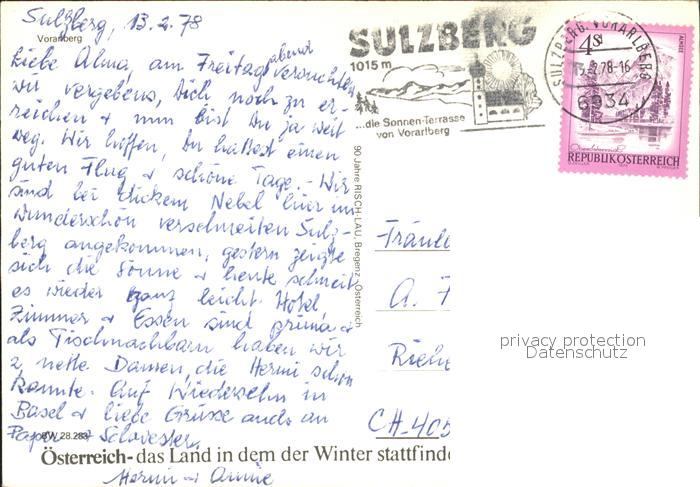 Sulzberg, 13.2.78
Vorarlberg
Liebe Alma, am Freitag abend versuchten
wir vergebens, Dich noch zu er-
reichen + nun bist Du ja weit
weg. Wir hoffen, Du hattest einen
guten Flug + schöne Tage. - Wir
sind bei dickem Nebel hier im
wunderschön verschneiten Sulz-
berg angekommen, gestern zeigte
sich die Sonne + heute schneit
es wieder ganz leicht. Hotel,
Zimmer + Essen sind prima, +
als Tischnachbarn haben wir
2 nette Damen, die Hermi schon
kannte. Auf Wiedersehn in
Basel + liebe Grüsse auch an
Papa + Schwester.
Hermi + Annie
BW 28.283
Österreich-das Land in dem der Winter stattfinde
90 Jahre RISCH-LAU, Bregenz-Österreich
SULZBERG
1015 m
...die Sonnen-Terrasse
von Vorarlberg
SULZBERG, VORARLBERG
13.2.78-16
6934
4 S
ALMSEE
REPUBLIK ÖSTERREICH
Fräule
A. F
Riehe
CH-405
privacy protection
Datenschutz